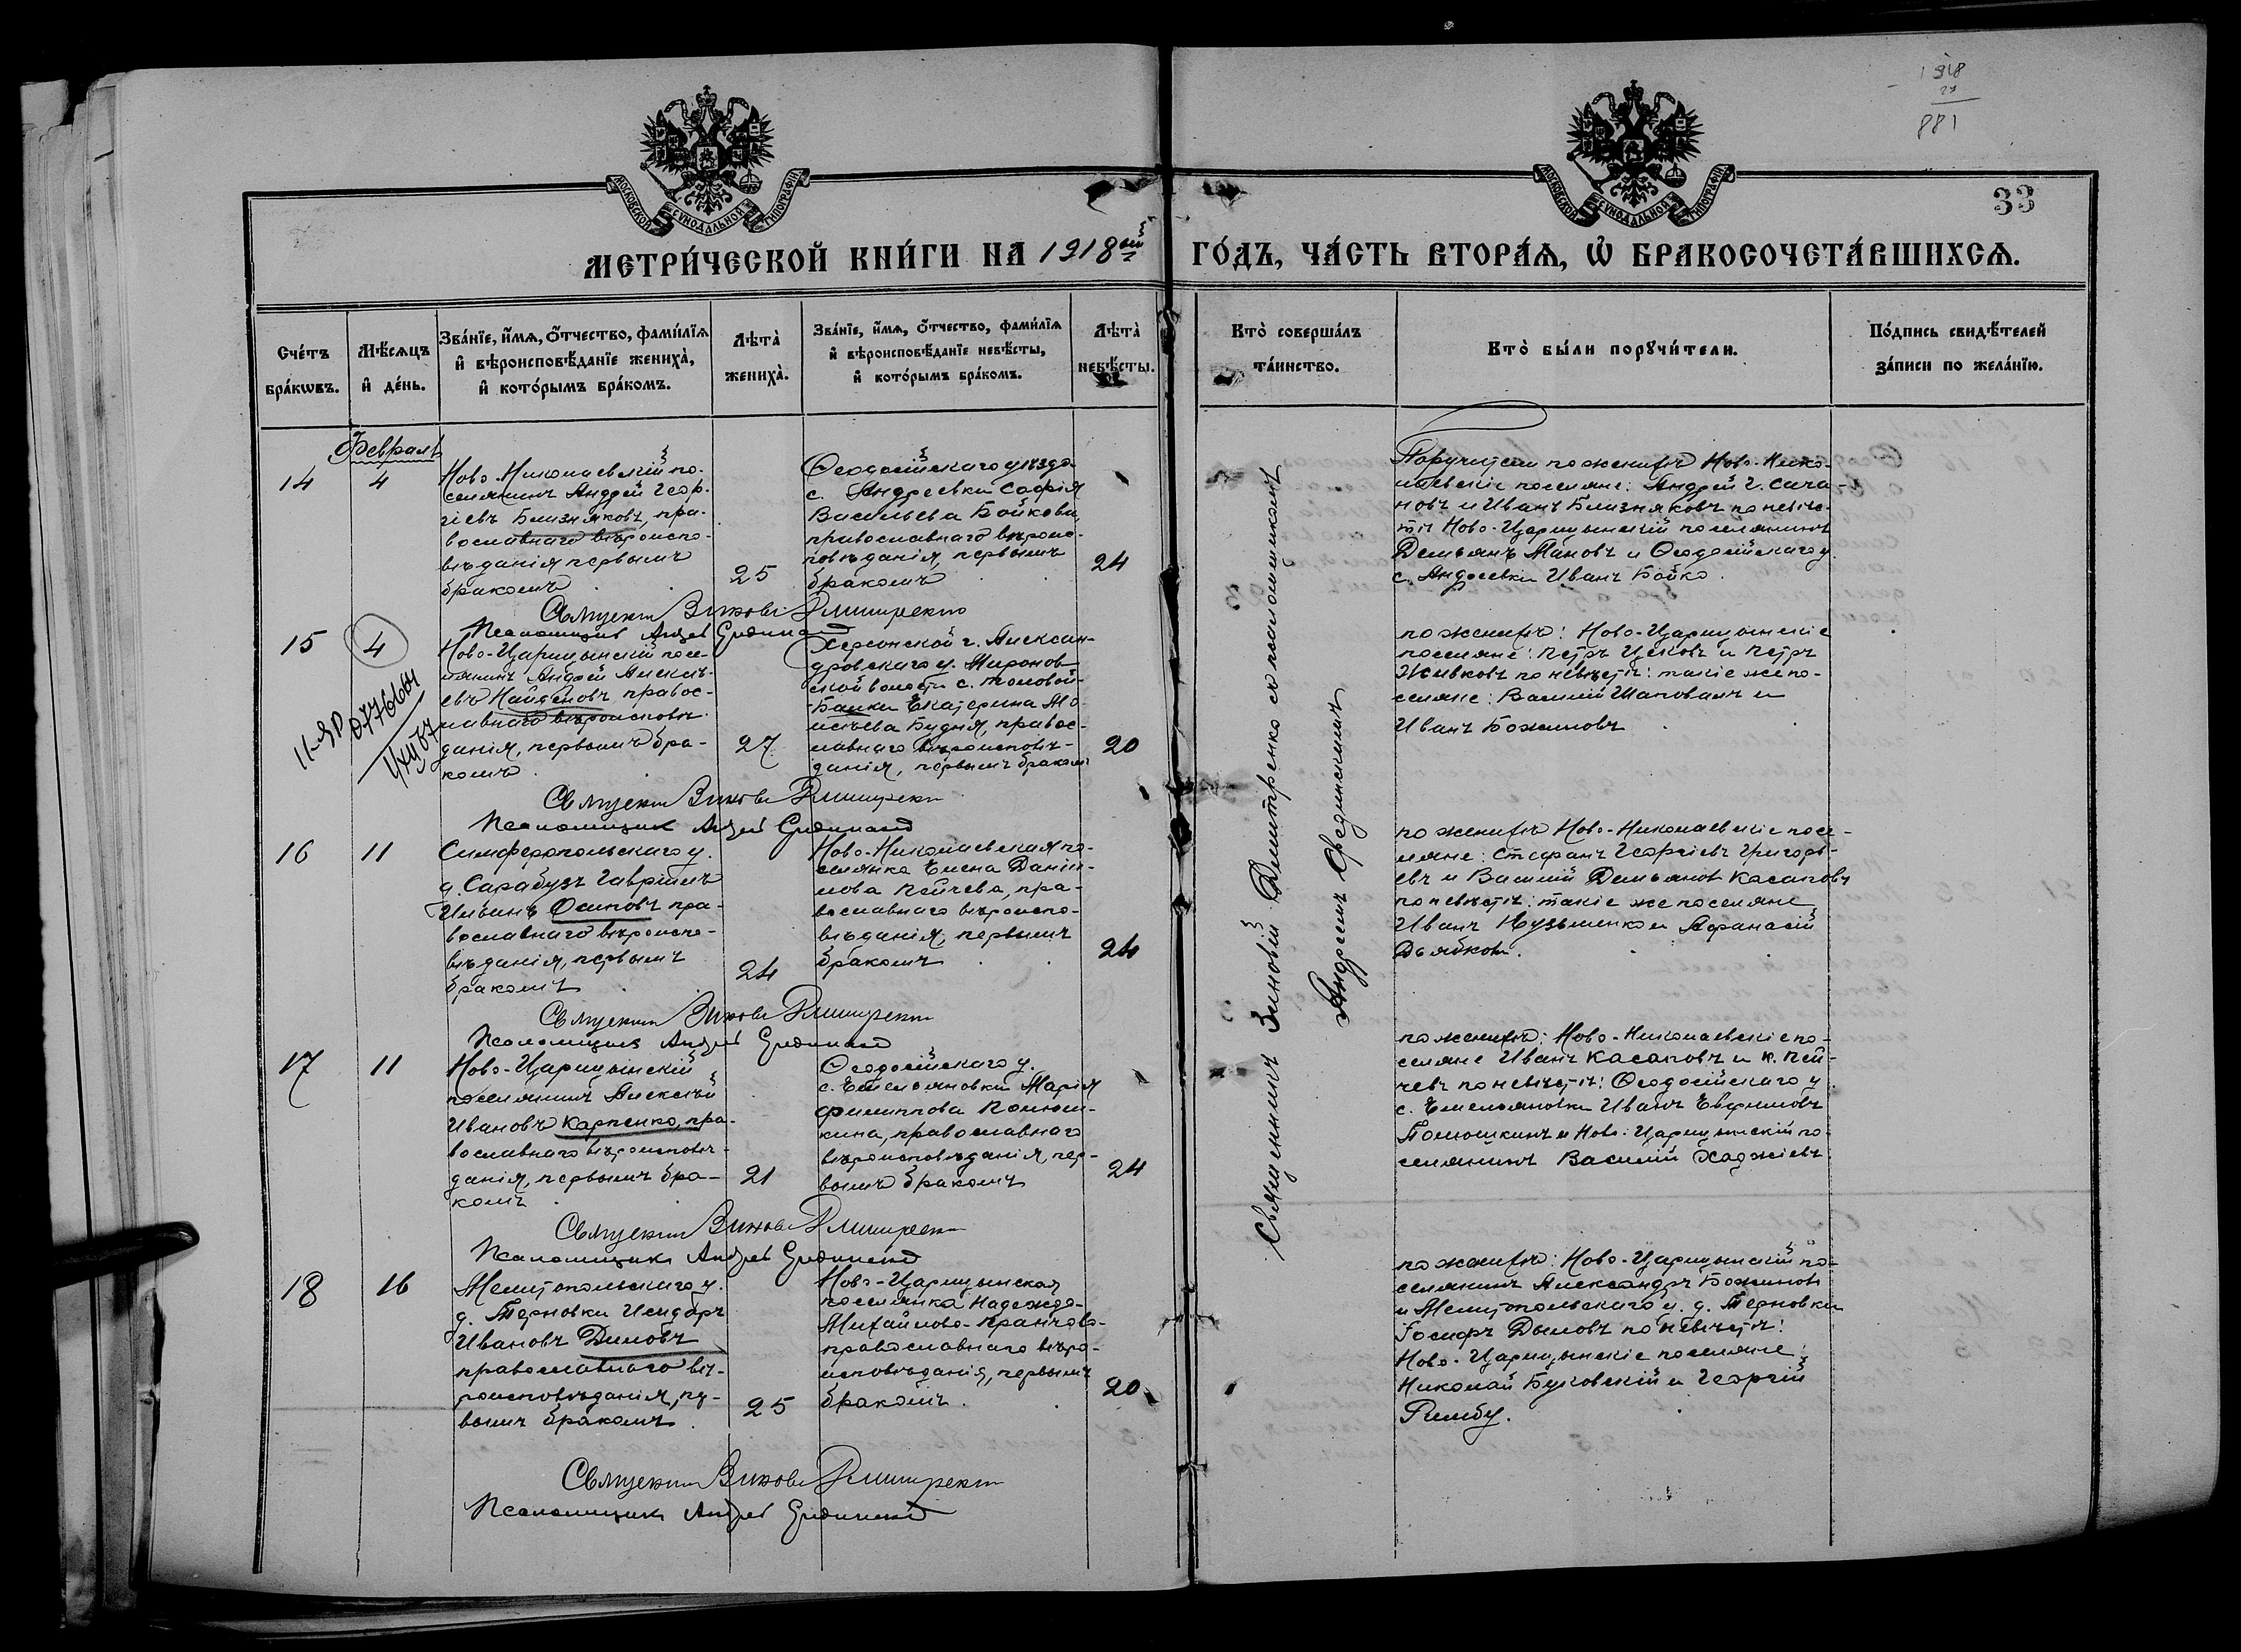 1918
27
881
33
МОСКОВСКОЙ СѴНОДАЛЬНОЙ ТИПОГРАФІИ
МОСКОВСКОЙ СѴНОДАЛЬНОЙ ТИПОГРАФІИ
МЕТРИ́ЧЕСКОЙ КНИ́ГИ НА 1918ый ГО́ДЪ, ЧА́СТЬ ВТОРА́Ѧ, Ѡ҆ БРАКОСОЧЕТА́ВШИХСѦ.
Сче́тъ бра́кѡвъ.
Мѣ́сѧцъ и҆ де́нь.
Зва́нїе, и҆́мѧ, ѻ҆́тчество, фами́лїѧ
и҆ вѣроисповѣ́данїе жениха̀,
и҆ кото́рымъ бра́комъ.
Лѣта̀ жениха̀.
Зва́нїе, и҆́мѧ, ѻ҆́тчество, фами́лїѧ
и҆ вѣроисповѣ́данїе невѣ́сты,
и҆ кото́рымъ бра́комъ.
Лѣта̀ невѣ́сты.
Кто̀ соверша́лъ та́инство.
Кто̀ бы́ли порꙋчи́тели.
По́дпись свидѣ́телей
за́писи по жела́нїю.
Февраль
14
4
Ново-Николаевскій по-
селянинъ Андрей Геор-
гіевъ Близняковъ, пра-
вославнаго вѣроиспо-
вѣданія первымъ
бракомъ.
25
Ѳеодосійскаго уѣзда
с. Андреевки Софія
Васильева Бойкова,
православнаго вѣроис-
повѣданія, первымъ
бракомъ
24
Поручители по женихѣ Ново-Нико-
лаевскіе поселяне: Андрей Г. Сача-
новъ и Иванъ Близняковъ по невѣс-
тѣ Ново-Царицынскій поселянинъ
Демьянъ Пановъ и Ѳеодосійскаго у.
с. Андреевки Иванъ Бойко.
Священникъ Зиновій Дмитренко
Псаломщикъ Андрей
15
4
Ново-Царицынскій посе-
лянинъ Андрей Алексѣ-
евъ Найденовъ правос-
лавнаго вѣроисповѣ-
данія, первымъ бра-
комъ.
27
Херсонской г. Алексан-
дровскаго у. Миронов-
ской волости с. Головой-
Балки Екатерина Мо-
исеева Будня, правос-
лавнаго вѣроисповѣ-
данія, первымъ бракомъ
20
по женихѣ: Ново-Царицынскіе
поселяне: Петръ Цековъ и Петръ
Живковъ по невѣстѣ: такіе же по-
селяне: Василій Шаповалъ и
Иванъ Божиновъ
Священникъ Зиновій Дмитренко
Псаломщикъ Андрей
16
11
Симферопольскаго у.
д. Сарабузъ Гавріилъ
Ивановъ Осиповъ пра-
вославнаго вѣроиспо-
вѣданія, первымъ
бракомъ
24
Ново-Николаевская по-
селянка Елена Даніи-
лова Пейчева, пра-
вославнаго вѣроиспо-
вѣданія, первымъ
бракомъ
24
по женихѣ Ново-Николаевскіе посе-
ляне: Стефанъ Георгіевъ Григорь-
евъ и Василій Демьяновъ Касаповъ
по невѣстѣ: такіе же поселяне
Иванъ Кузьменко и Афанасій
Дьябков.
Священникъ Зиновій Дмитренко
Псаломщикъ Андрей
17
11
Ново-Царицынскій
поселянинъ Алексѣй
Ивановъ Карпенко, пра-
вославнаго вѣроисповѣ-
данія, первымъ бра-
комъ
21
Ѳеодосійскаго у.
с. Емельяновки Марія
Филиппова Полюш-
кина, православнаго
вѣроисповѣданія, пер-
вымъ бракомъ
24
по женихѣ: Ново-Николаевскіе по-
селяне Иванъ Касаповъ и К. Пей-
чевъ по невѣстѣ: Ѳеодосійскаго у.
с. Емельяновки Иванъ Евфимовъ
Полюшкинъ и Ново-Царицынскій по-
селянинъ Василій Хаджіевъ
Священникъ Зиновій Дмитренко
Псаломщикъ Андрей
18
16
Мелитопольскаго у.
д. Терновки Исидоръ
Ивановъ Димовъ
православнаго вѣ-
роисповѣданія, пер-
вымъ бракомъ
25
Ново-Царицынская
поселянка Надежда
Михайлова
православнаго вѣро-
исповѣданія, первымъ
бракомъ.
20
по женихѣ: Ново-Царицынскій по-
селянинъ Александръ Божинов
и Мелитопольскаго у. д. Терновки
Іосифъ Дымовъ по невѣстѣ:
Ново-Царицынскіе поселяне:
Николай Буковскій и Георгій
Гимбу.
Священникъ Зиновій Дмитренко
Псаломщикъ Андрей
Священникъ Зиновій Дмитренко съ псаломщикомъ
Андреемъ